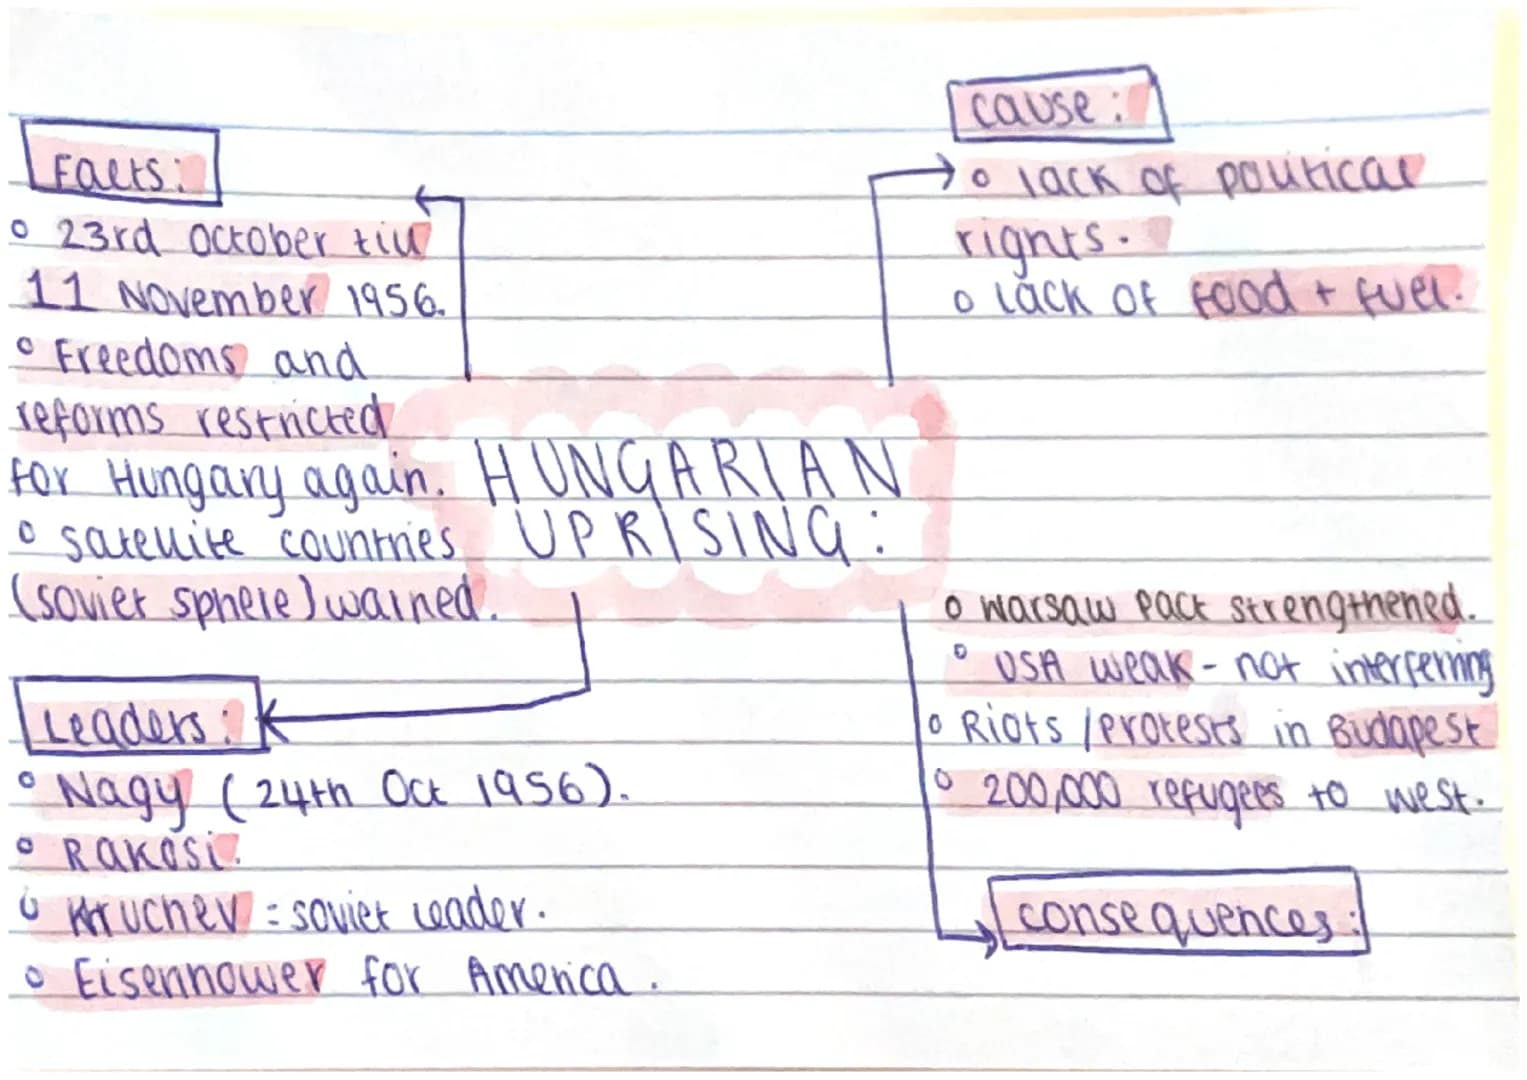 Facts:
o 23rd October till
11 November 1956.
o Freedoms and
reforms restricted
for Hungary again.
o satellite countries
(soviet sphere) warned.
cause:
o lack of political
rights.
o lack of food + fuel.
HUNGARIAN
UPRISING:
Leaders:
o Nagy (24th Oct 1956).
o Rakosi.
o Kruchev = soviet leader.
o Eisenhower for America.
o Warsaw Pact strengthened.
o USA weak - not interferring
o Riots / protests in Budapest
o 200,000 refugees to west.
consequences: